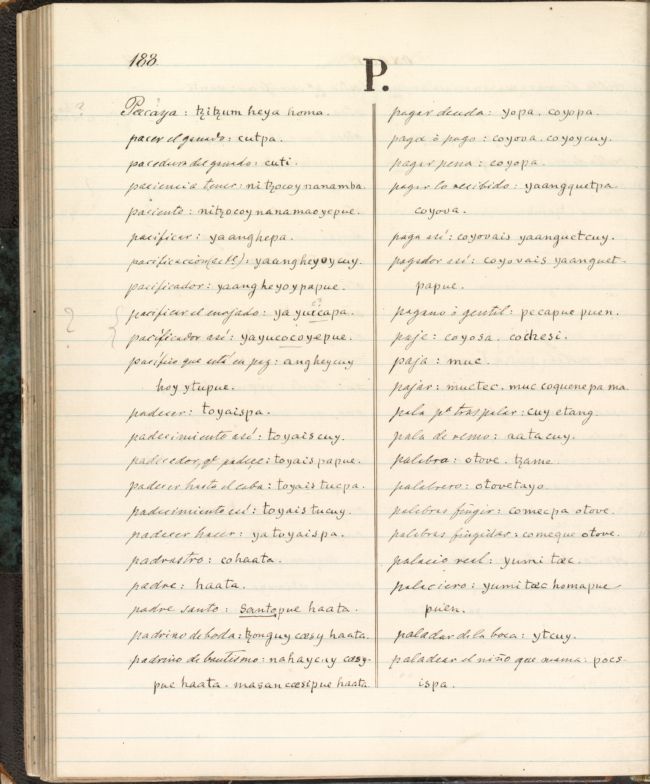 188.
P.
Paccaya: tzitzum heya homa.
pacer el ganado: cutpa.
pacedura del ganado: cuti.
paciencia tener: nitzocoynanamba.
paciento: nitzocoy nanamaoyepue.
pacificar: yaanghepa.
pacificacion: yaangheyoycuy.
pacificador: yaangheyoypapue.
pacificar el enojado: yayucapa.
pacificador así: yayucocoyepue.
pacífico que está en paz: angheycuy
hoy ytupue.
padecer: toyaispa.
padecimiento así: toyaiscuy.
padecedor, qe. padece: toyaispapue.
padecer hasta el cabo: toyaistucpa.
padecimiento así: toyaistucuy.
padecer hacer: yatoyaispa.
padrastro: cohaata.
padre: haata.
padre santo: santopue haata.
padrino de boda: tzonguy cœsy haata.
padrino de bautismo: nahaycuy cœsy-
pue haata. masancœsepue haata.
pagar deuda: yopa. coyopa.
paga ó pago: coyova. coyoycuy.
pagar pena: coyopa.
pagar lo recibido: yaangquetpa
coyova.
paga así: coyovais yaanguetcuy.
pagador así: coyovais yaanguet-
papue.
pagano ó gentil: pecapue puen.
paje: coyosa. cochesi.
paja: muc.
pajar: muctec. muc coquenepa ma.
pala pa. traspalar: cuy etang.
pala de remo: aatacuy.
palabra: otove. tzame.
palabrero: otovetayo.
palabras fingir: comecpa otove.
palabras fingidas: comeque otove.
palacio real: yumi tœc.
palaciero: yumi tœc homapue
puen.
paladar de la boca: ytcuy.
paladear el niño que mama: pocs-
ispa.